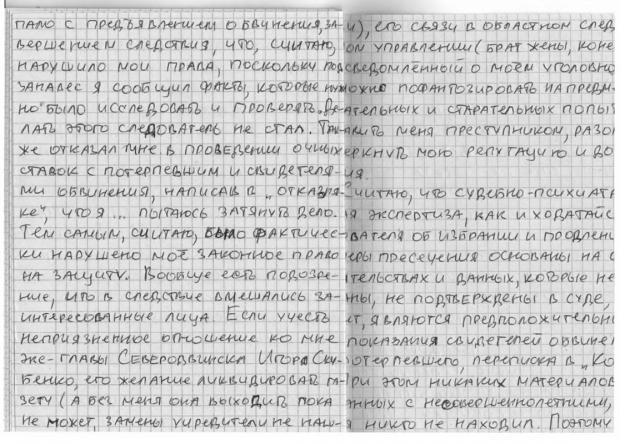 пало с предъявлением обвинения, за-
вершением следствия, что, считаю,
нарушило мои права, поскольку под
занавес я сообщил факты, которые нуж
но было исследовать и проверять. Де-
лать этого следователь не стал. Так
же отказал мне в проведении очных
ставок с потерпевшим и свидетеля-
ми обвинения, написав в „отказухе
ке", что я... пытаюсь затянуть дело.
Тем самым, считаю, было фактичес-
ки нарушено моё законное право
на защиту. Вообще есть подозре-
ние, что в следствие вмешались за-
интересованные лица. Если учесть
неприязненное отношение ко мне
экс-главы Северодвинска Игоря Ску-
бенко, его желание ликвидировать га-
зету (а без меня она выходить пока
не может, замены учредители не наш-
и), его связи в областном след
ом управлении (брат жены, коне
сведомлённый о моём уголовно
ожно пофантазировать на предм
ательных и старательных попыт
авить меня преступником, разо
еркнуть мою репутацию и до
ия.
читаю, что судебно-психиат
я экспертиза, как и ходатайс
вателя об избрании и продлен
еры пресечения основаны на
тельствах и данных, которые не
ны, не подтверждены в суде,
т, являются предположительн
показания свидетелей обвине
отерпевшего, переписка в „Ко
ри этом никаких материалов
нных с несовершеннолетними,
я никто не находил. Поэтому